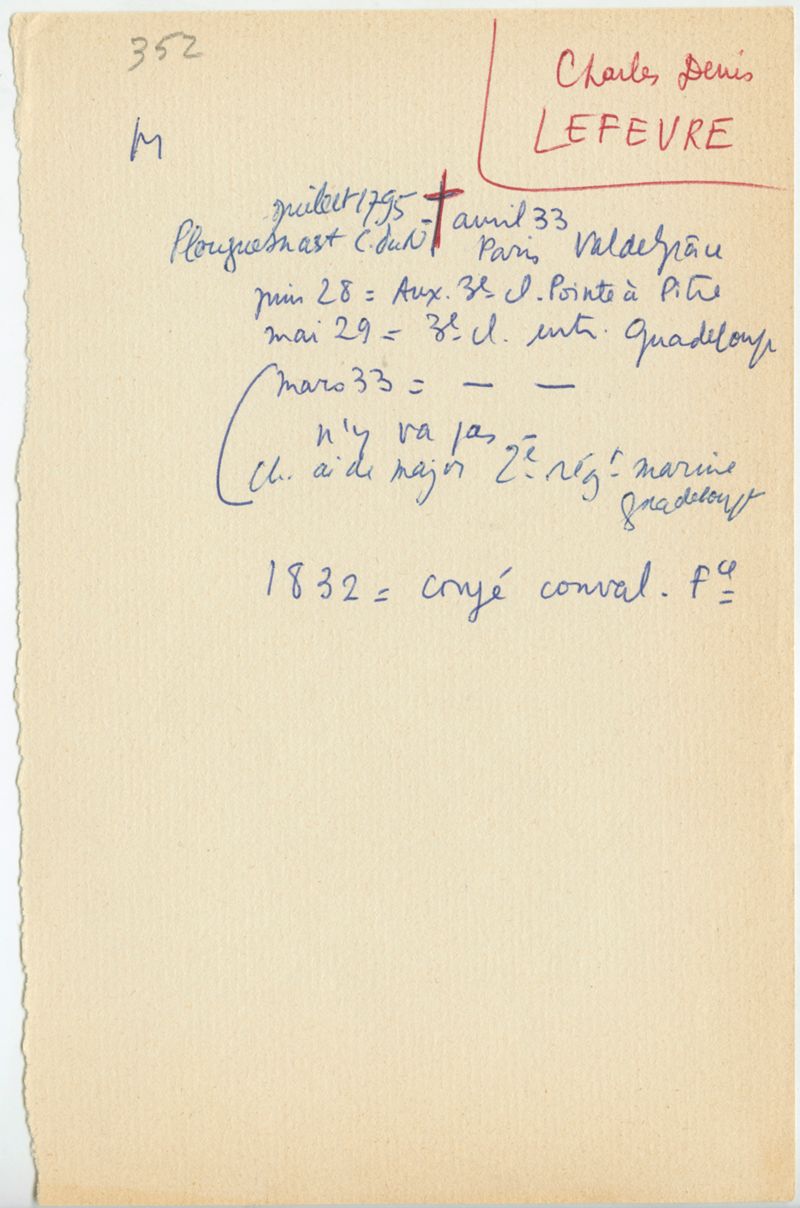 352
Charles Denis
LEFEVRE
M
juillet 1795 † avril 33
Plouguenast C. du N. Paris Val de Grâce
juin 28 = Aux. 3e cl. Pointe à Pitre
mai 29 = 3e cl. entr. Guadeloupe
mars 33 = — —
n'y va pas =
Ch. aide major 2e régt marine
Guadeloupe
1832 = congé conval. Fce